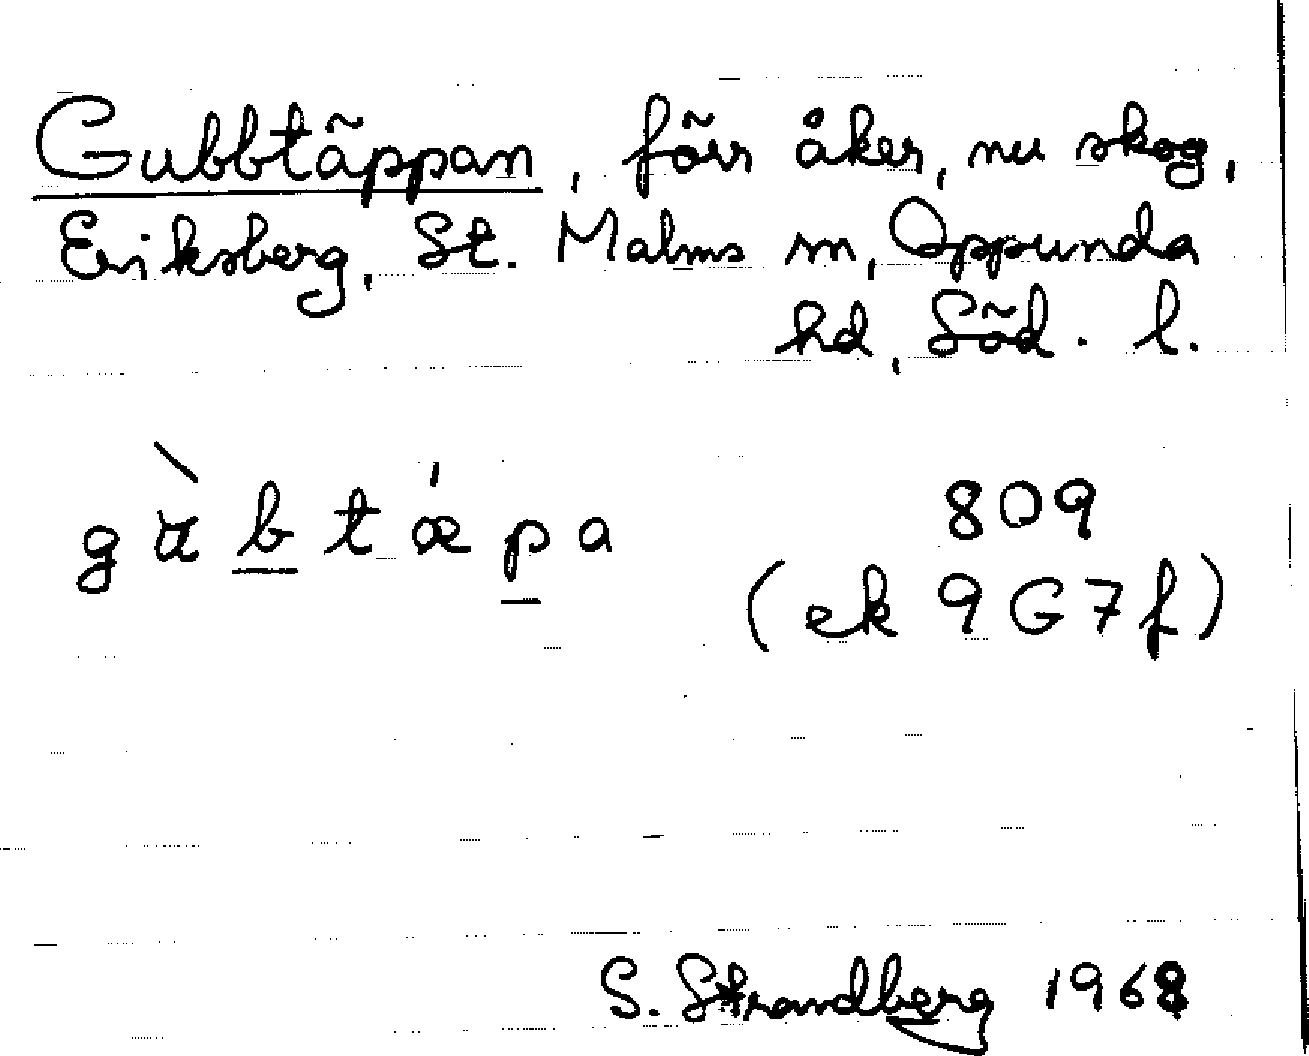 Gubbtäppan, förr åker, nu skog,
Eriksberg, St. Malms sn, Oppunda
hd, Söd. l.
gàbtǽpa
809
(ek 9G7f)
S. Strandberg 1968